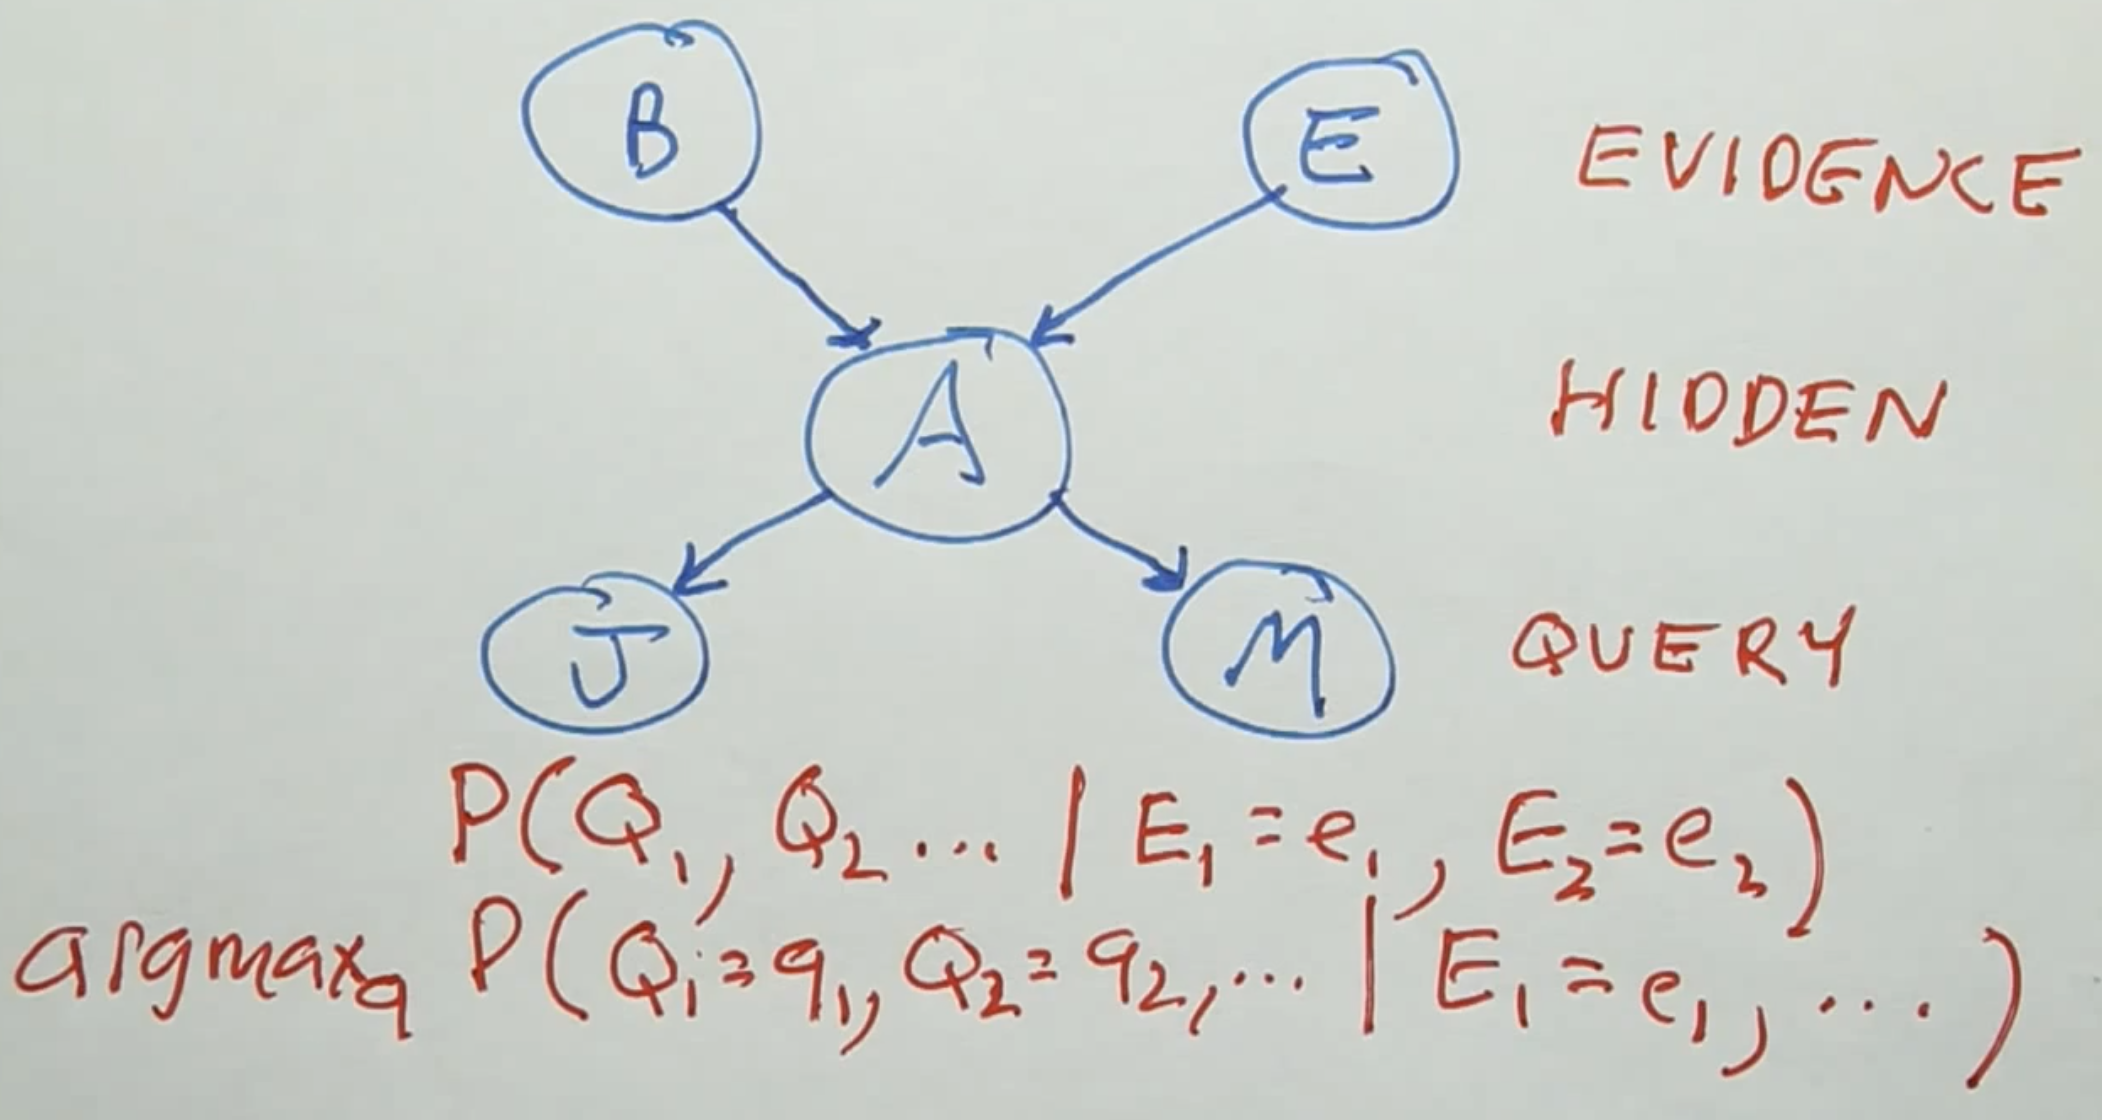 B
E
EVIDENCE
A
HIDDEN
J
M
QUERY
P(Q₁, Q₂... | E₁=e₁, E₂=e₂)
argmax_q P(Q₁=q₁, Q₂=q₂,... | E₁=e₁, ...)